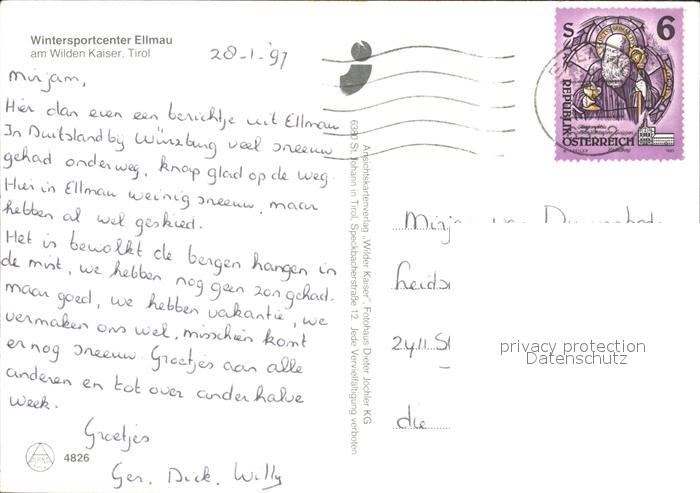 Wintersportcenter Ellmau
am Wilden Kaiser, Tirol
28-1-'97
Mirjam,
Hier dan even een berichtje uit Ellmau
In Duitsland bij Würzburg veel sneeuw
gehad onderweg, knap glad op de weg.
Hier in Ellmau weinig sneeuw, maar
hebben al wel geskied.
Het is bewolkt de bergen hangen in
de mist, we hebben nog geen zon gehad.
maar goed, we hebben vakantie, we
vermaken ons wel, misschien komt
er nog sneeuw. Groetjes aan alle
anderen en tot over anderhalve
week.
Groetjes
Ger, Dick, Willy
4826
Ansichtskartenverlag „Wilder Kaiser", Fotohaus Dieter Jöchler KG
6380 St. Johann in Tirol, Speckbacherstraße 12. Jede Vervielfältigung verboten
S 6
REPUBLIK
ÖSTERREICH
Mirja
Leids
2411 S
die
privacy protection
Datenschutz